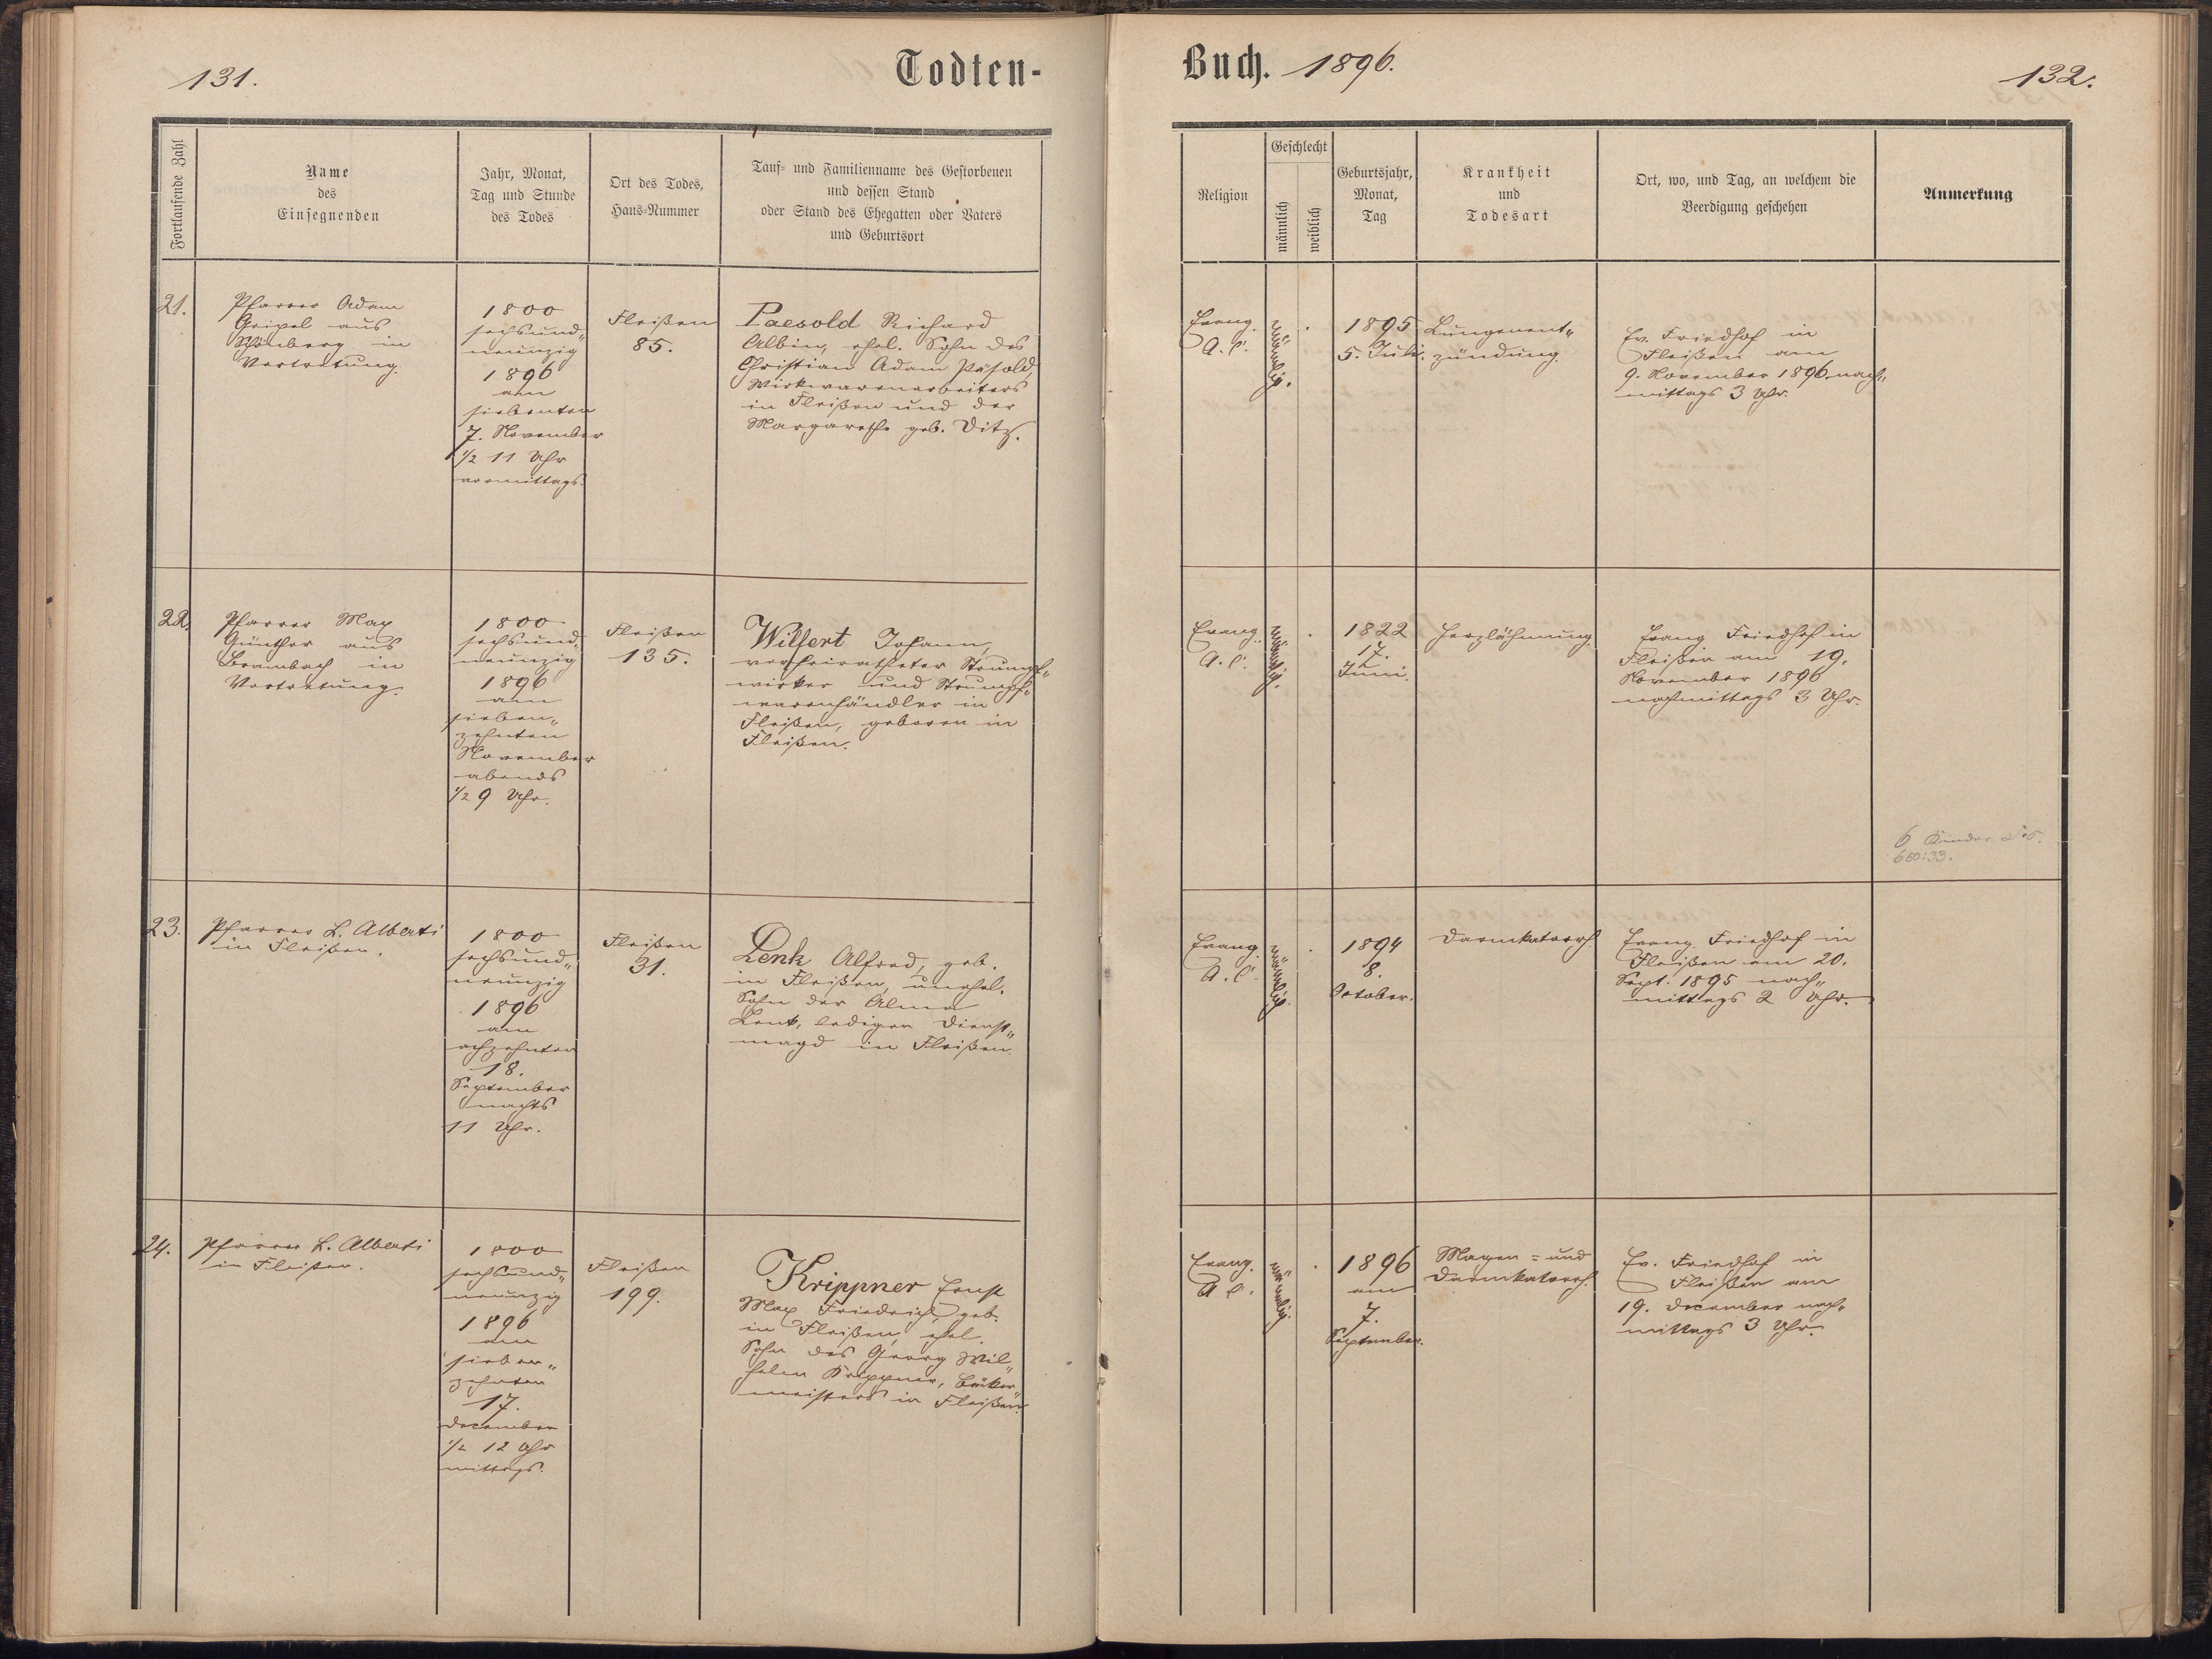 131.
Todten-
Buch. 1896.
132.
Fortlaufende Zahl
Name
des
Einsegnenden
Jahr, Monat,
Tag und Stunde
des Todes
Ort des Todes,
Haus-Nummer
Tauf- und Familienname des Gestorbenen
und dessen Stand
oder Stand des Ehegatten oder Vaters
und Geburtsort
Religion
Geschlecht
männlich
weiblich
Geburtsjahr,
Monat,
Tag
Krankheit
und
Todesart
Ort, wo, und Tag, an welchem die
Beerdigung geschehen
Anmerkung
21.
Pfarrer Adam
Geipel aus
Schönberg in
Vertretung.
1800
sechsund„
neunzig
1896
am
siebenten
7. November
1/2 11 Uhr
vormittags.
Fleißen
85.
Paesold Richard
Albin, ehel. Sohn des
Christian Adam Päsold,
Wirkwarenarbeiters
in Fleißen und der
Margarethe geb. Ditz.
Evang.
A. C.
männlich.
1895
5. Juli.
Lungenent„
zündung.
Ev. Friedhof in
Fleißen am
9. November 1896 nach„
mittags 3 Uhr.
22.
Pfarrer Max
Günther aus
Brambach in
Vertretung.
1800
sechsund„
neunzig
1896
am
sieben„
zehnten
November
abends
1/2 9 Uhr.
Fleißen
135.
Wilfert Johann,
verheiratheter Strumpf„
wirker und Strumpf„
warenhändler in
Fleißen, geboren in
Fleißen.
Evang.
A. C.
männlich.
1822
17.
Juni.
Herzlähmung.
Evang Friedhof in
Fleißen am 19.
November 1896
nachmittags 3 Uhr.
6 Kinder
650:33.
23.
Pfarrer L. Alberti
in Fleißen.
1800
sechsund„
neunzig
1896
am
achzehnten
18.
September
nachts
11 Uhr.
Fleißen
31.
Lenk Alfred, geb.
in Fleißen, unehel.
Sohn der Alma
Lenk, ledigen Dienst„
magd in Fleißen.
Evang.
A. C.
männlich.
1894
8.
October.
Darmkatarrh
Evang. Friedhof in
Fleißen am 20.
Sept. 1895 nach„
mittags 2 Uhr.
24.
Pfarrer L. Alberti
in Fleißen.
1800
sechsund„
neunzig
1896
am
sieben„
zehnten
17.
December
1/2 12 Uhr
mittags.
Fleißen
199.
Krippner Ernst
Max Friedrich, geb.
in Fleißen, ehel.
Sohn des Georg Wil„
helm Krippner, Bäcker„
meisters in Fleißen.
Evang.
A. C.
männlich.
1896
am
7.
September.
Magen = und
Darmkatarrh.
Ev. Friedhof in
Fleißen am
19. December nach„
mittags 3 Uhr.